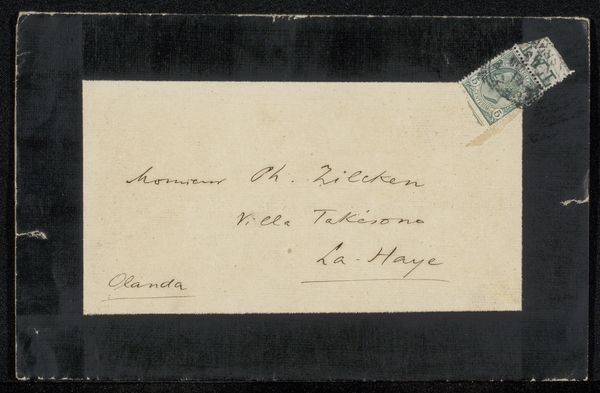 Monsieur Ph. Zilcken
Villa Takésono
La-Haye
Olanda